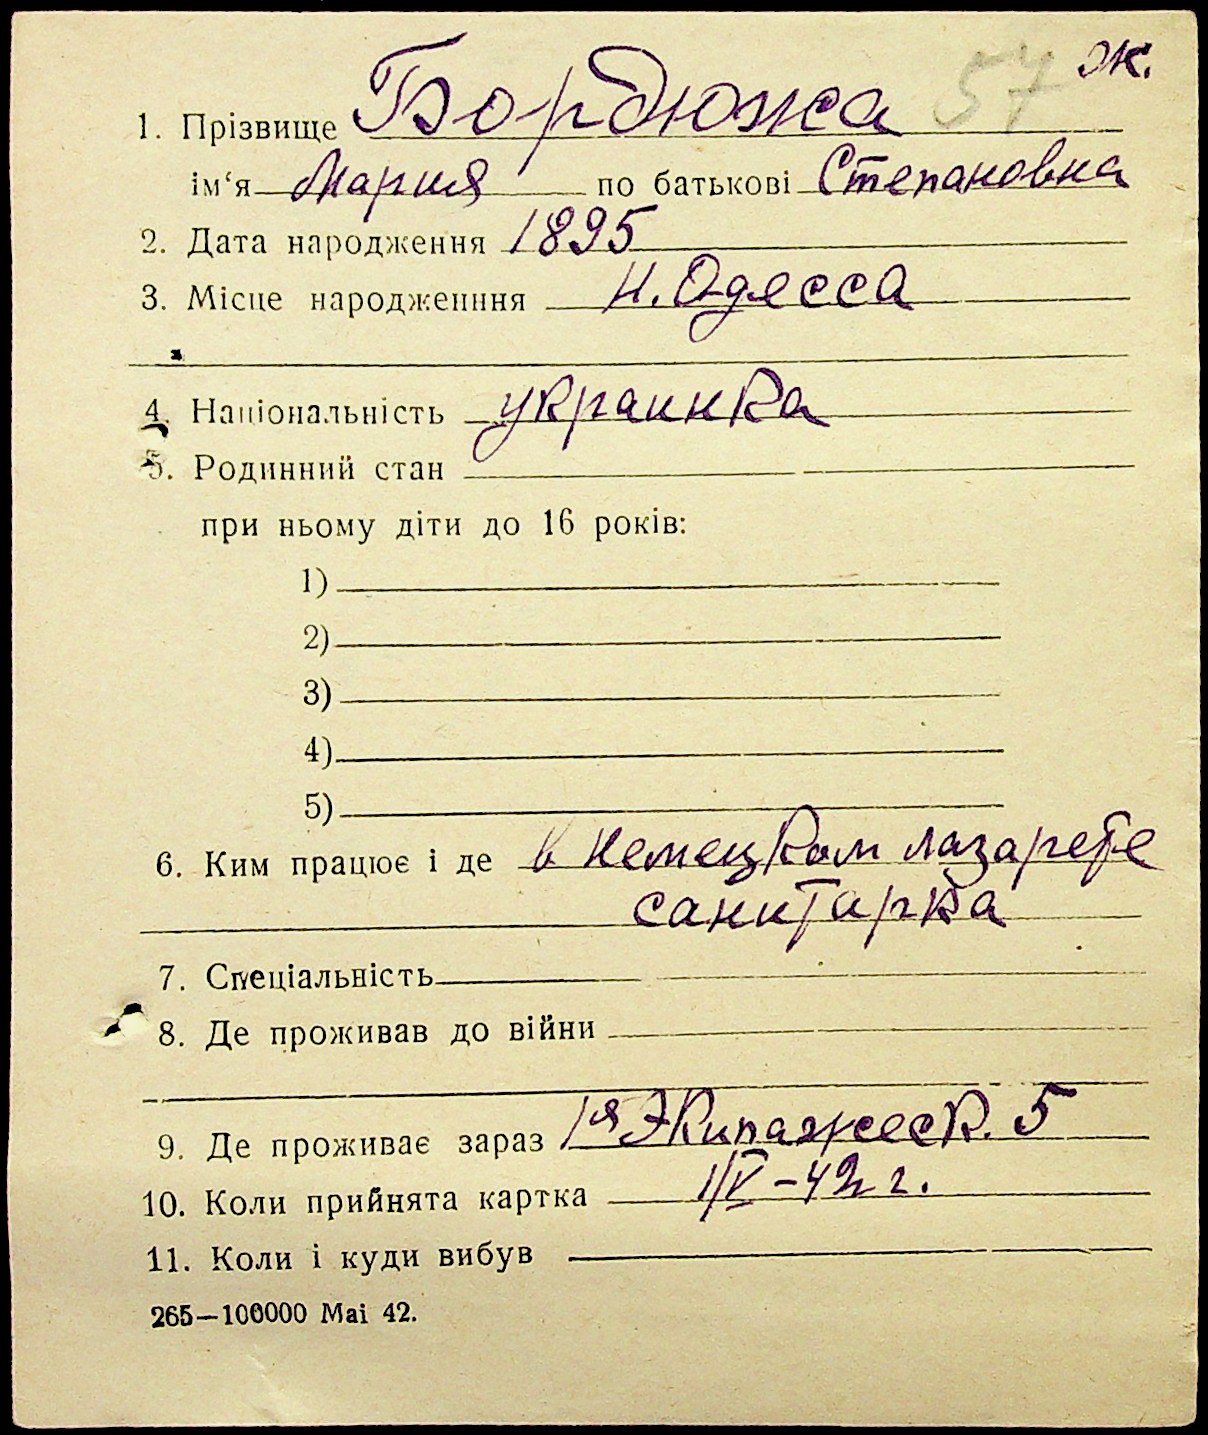 57 ж.
1. Прізвище Бордюжа
ім‘я Мария по батькові Степановна
2. Дата народження 1895
3. Місце народженння Н. Одесса
4. Національність украинка
5. Родинний стан
при ньому діти до 16 років:
1)
2)
3)
4)
5)
6. Ким працює і де в немецком лазарете
санитарка
7. Спеціальність
8. Де проживав до війни
9. Де проживає зараз 1я Экипажеск. 5
10. Коли прийнята картка 1/V – 42 г.
11. Коли і куди вибув
265—100000 Маі 42.